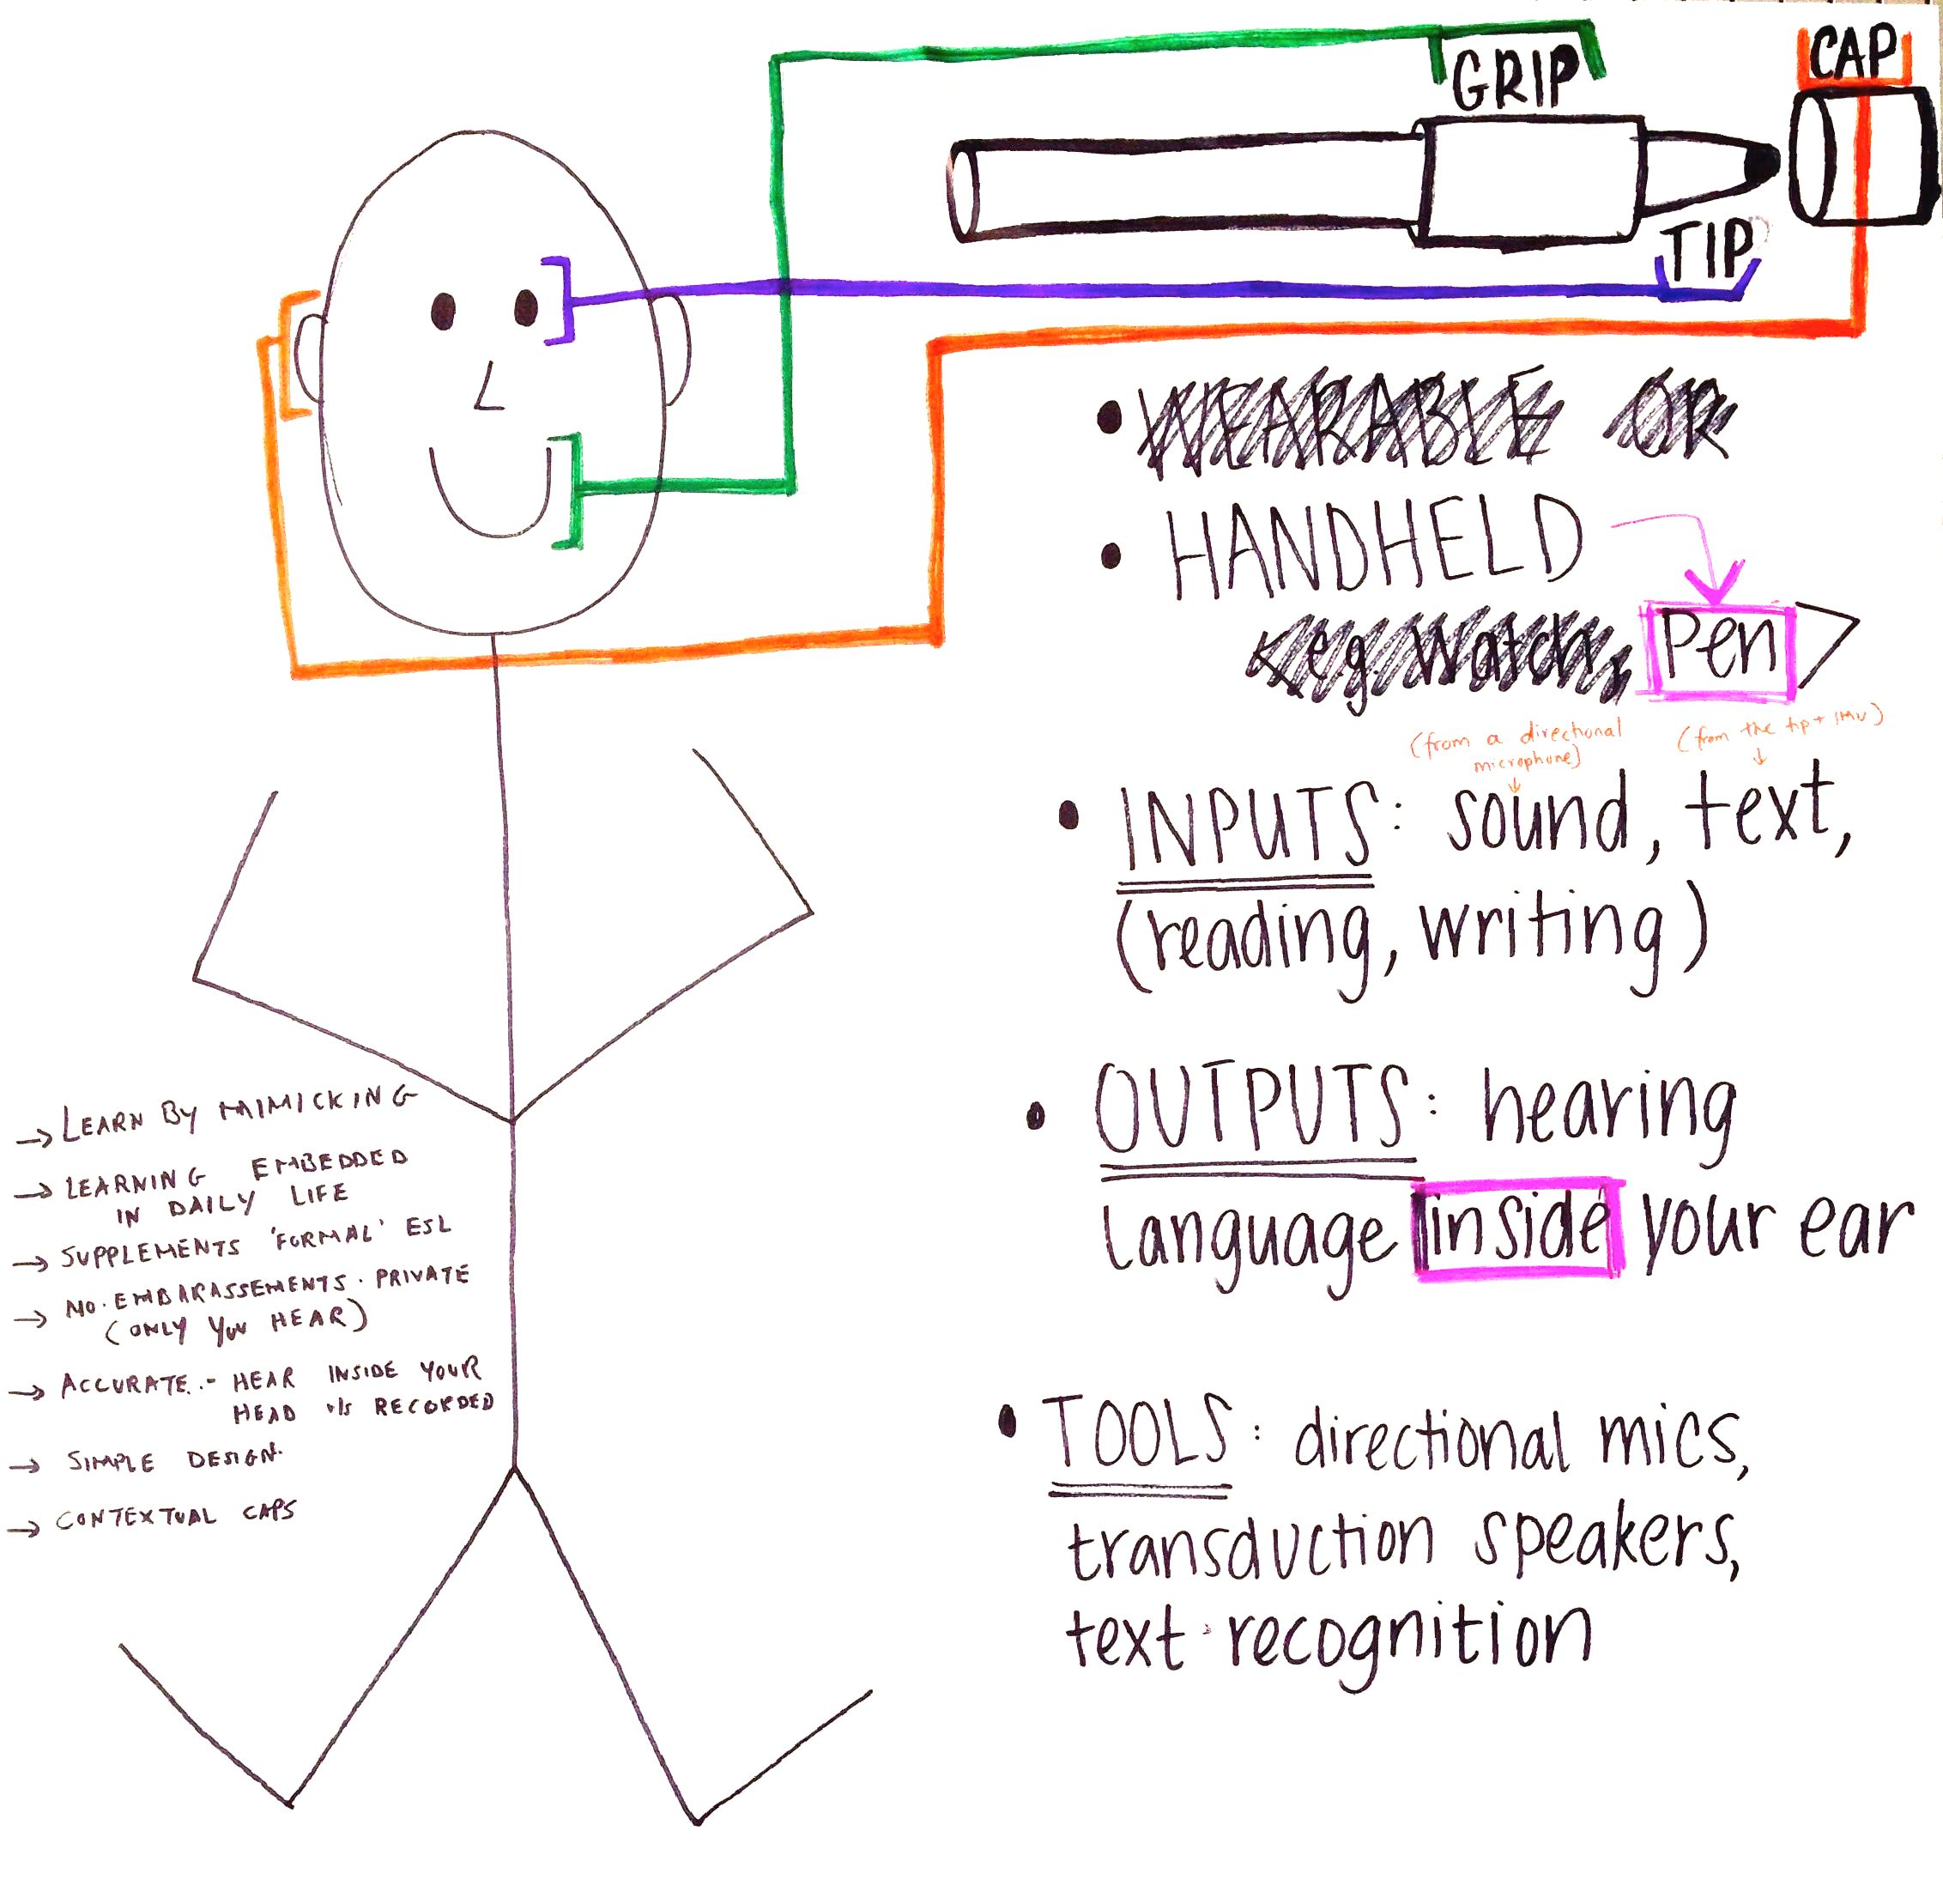 GRIP
CAP
TIP
• WEARABLE OR
• HANDHELD
<eg. Watch, Pen>
(from a directional
microphone)
(from the tip + IMU)
• INPUTS: sound, text,
(reading, writing)
• OUTPUTS: hearing
language inside your ear
• TOOLS: directional mics,
transduction speakers,
text recognition
→ LEARN BY MIMICKING
→ LEARNING EMBEDDED
IN DAILY LIFE
→ SUPPLEMENTS 'FORMAL' ESL
→ NO. EMBARASSEMENTS. PRIVATE
(ONLY YOU HEAR)
→ ACCURATE.- HEAR INSIDE YOUR
HEAD v/s RECORDED
→ SIMPLE DESIGN.
→ CONTEXTUAL CAPS